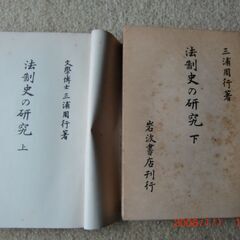 文學博士 三浦周行著
法制史の研究 上
三浦周行著
法制史の研究 下
岩波書店刊行